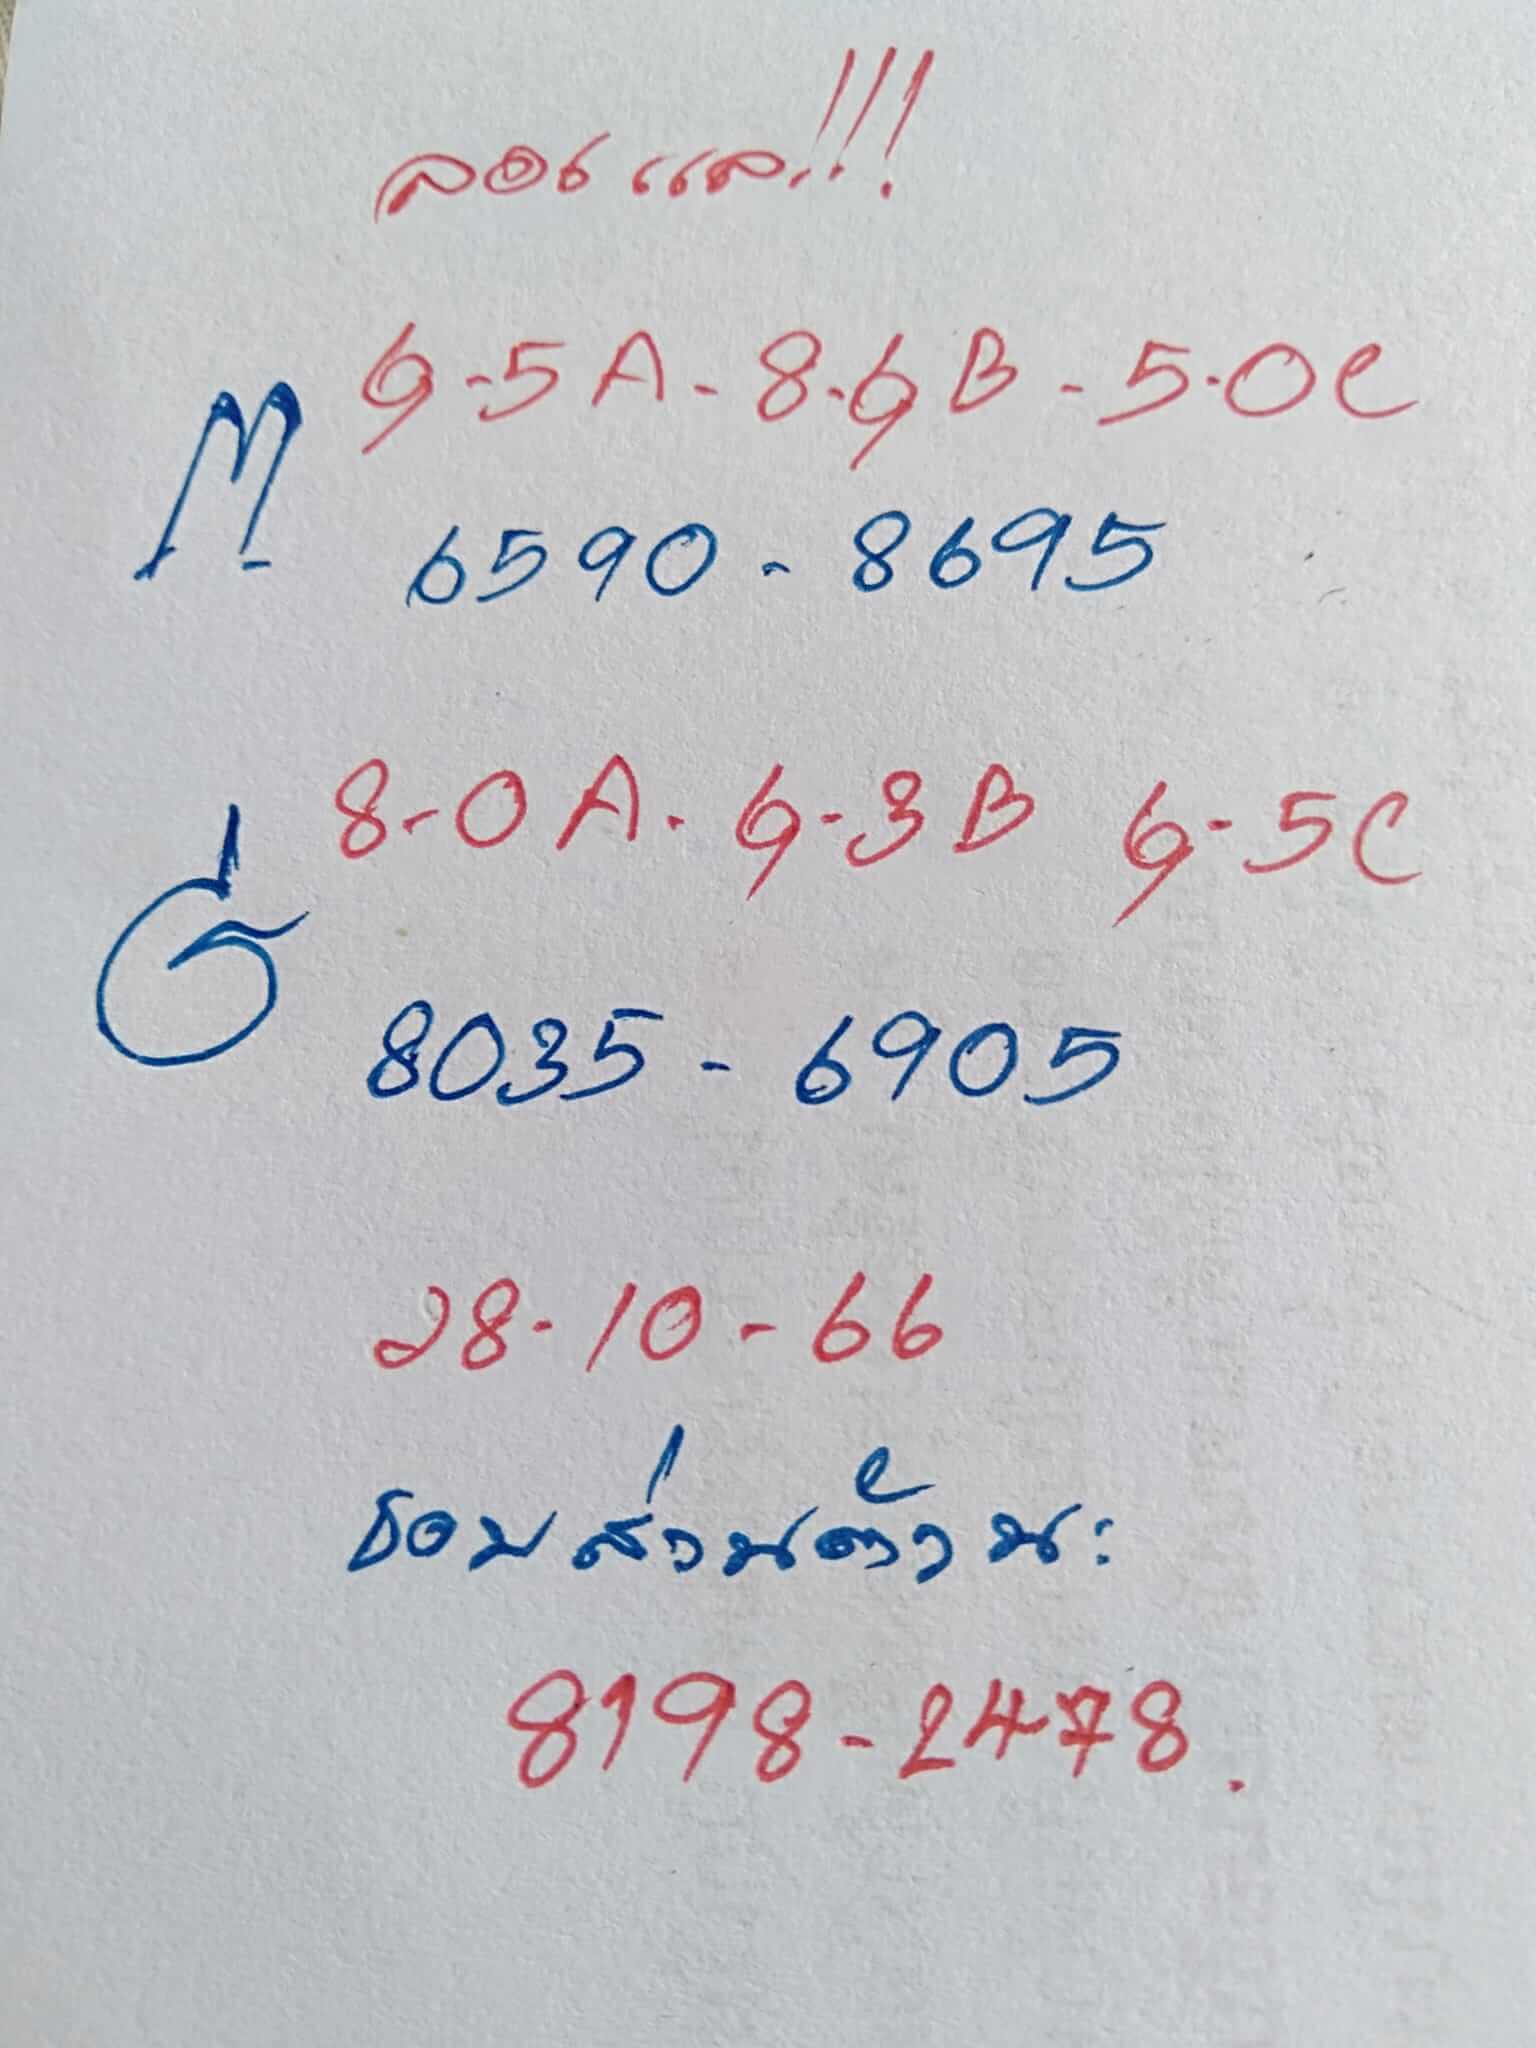 ลองแล..!!!
M 6-5A-8-6B-5-0C
6590-8695
8-0A-6-3B 6-5C
8035-6905
28-10-66
ชอบส่วนตัวนะ
8198-2478.